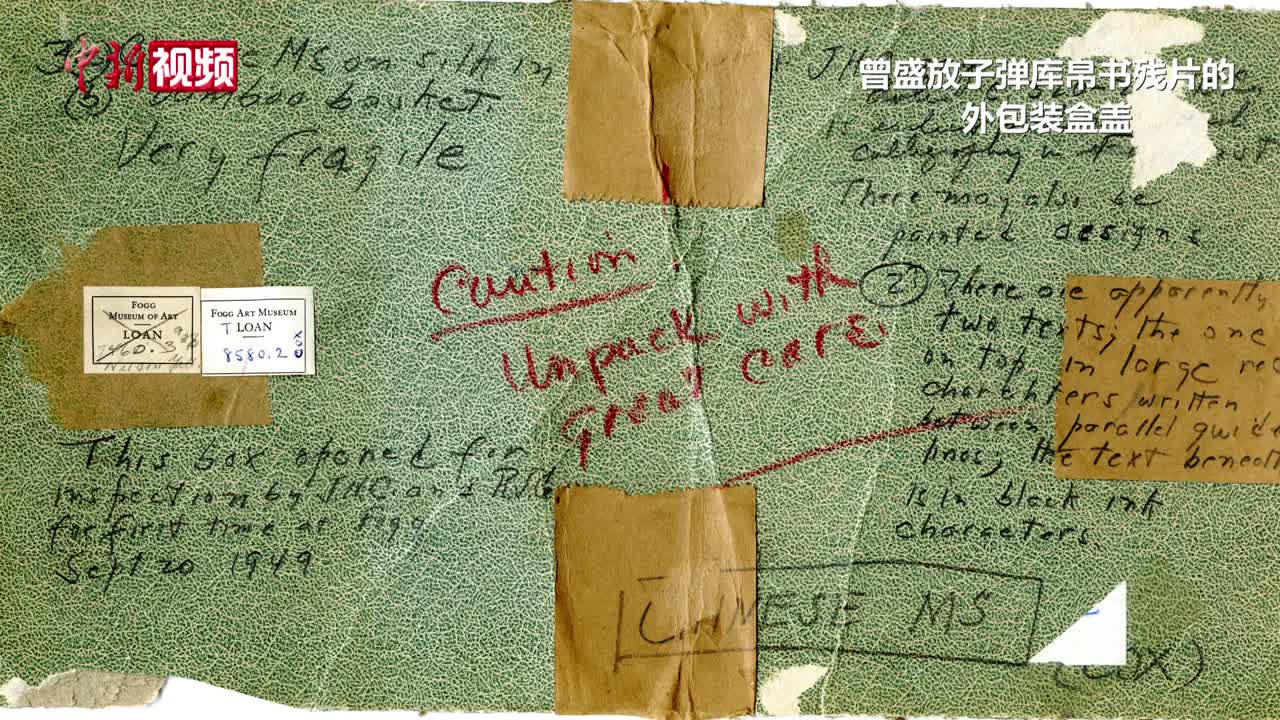 中新视频
曾盛放子弹库帛书残片的
外包装盒盖
MS on silk in
bamboo basket
Very fragile
FOGG
MUSEUM OF ART
LOAN
7460.3
FOGG ART MUSEUM
T LOAN
8580.2
COX
This box opened for
inspection by and
for first time at Fogg
Sept 20 1949
Caution
Unpack with
great care
calligraphy in
There may also be
painted designs
2) There are apparently
two texts; the one
on top in large red
charahters written
between parallel guide
lines; the text beneath
is in black ink
characters.
CHINESE MS
(COX)